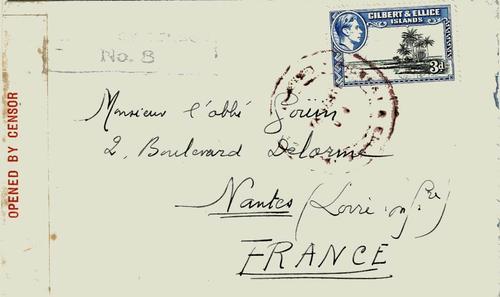 GILBERT & ELLICE
ISLANDS
3d
No. 8
OPENED BY CENSOR
Monsieur l'abbé Goüin
2, Boulevard Delorme
Nantes (Loire-Infre)
FRANCE